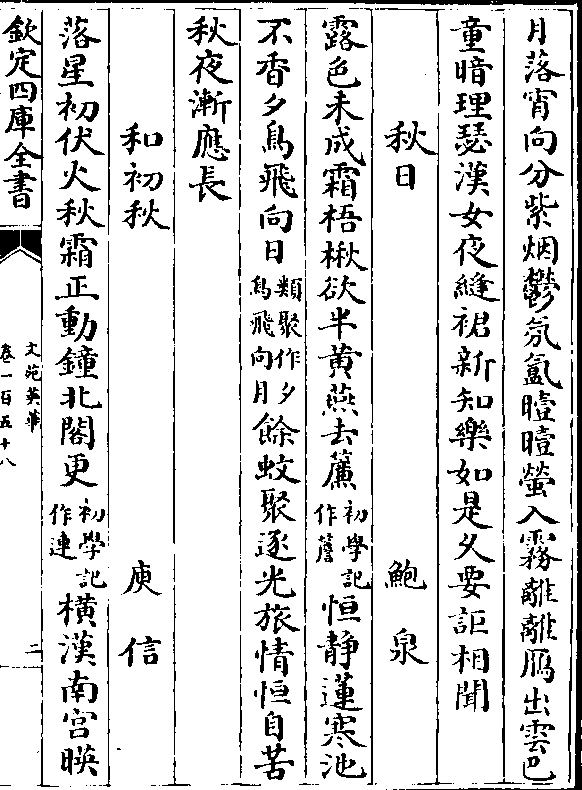 月落宵向分紫烟鬱氛氳曀曀螢入霧離離鴈出雲巴
童暗理瑟漢女夜縫裙新知樂如是久要詎相聞
秋日 鮑泉
露色未成霜梧楸欲半黄燕去簾初學記作簷恒静蓮寒池
不香夕鳥飛向日類聚作夕鳥飛向月餘蚊聚逐光旅情恒自苦
秋夜漸應長
和初秋 庾信
落星初伏火秋霜正動鐘北閣更初學記作連横漢南宫暎
欽定四庫全書
文苑英華
卷一百五十八
二